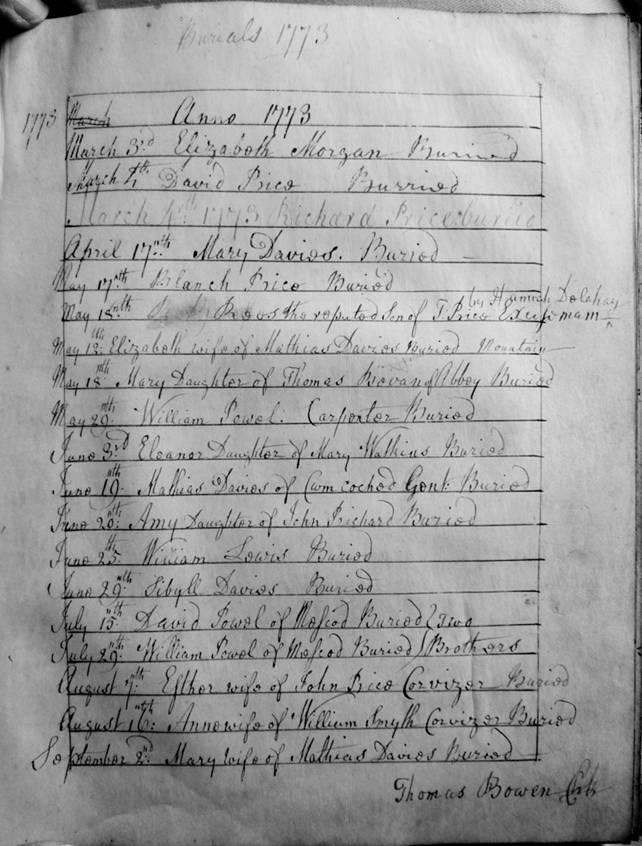 Burials 1773
1773 March Anno 1773
March 3rd Elizabeth Morgan Burried
March 4th David Price Burried
March 1773 Richard Price buried
April 17nth Mary Davies. Buried
May 17nth Blanch Price Buried
by Hannah Delahay
May 18nth Rees the reputed Son of T Price Exciseman
May 12th: Elizabeth wife of Mathias Davies Buried Mountain
May 18nth Mary Daughter of Thomas Bevan of Abbey Buried
May 29nth: William Powel. Carpenter Buried
June 3rd Eleanor Daughter of Mary Watkins Buried
June 19nth: Mathias Davies of Cwm coched Gent: Buried
June 20nth: Amy Daughter of John Prichard Buried
June 25th: William Lewis Buried
June 29nth: Sibyll Davies Buried
July 15nth: David Powel of Mescod Buried two
July 29nth: William Powel of Mescod Buried Brothers
August 7th: Esther wife of John Price Corvizer Buried
August 16nth: Anne wife of William Smyth Corvizer Buried
September 2d Mary wife of Mathias Davies Buried
Thomas Bowen Clk